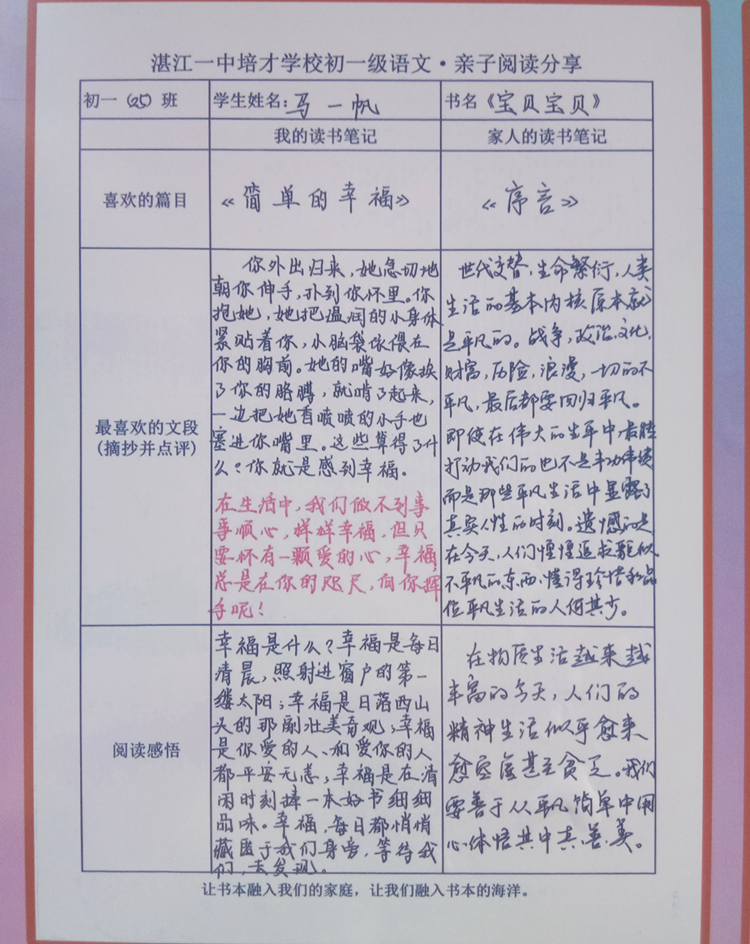 湛江一中培才学校初一级语文·亲子阅读分享
初一(25)班 学生姓名:马一帆 书名《宝贝宝贝》
我的读书笔记 家人的读书笔记
喜欢的篇目 《简单的幸福》 《序言》
最喜欢的文段
(摘抄并点评)
你外出归来,她急切地
朝你伸手,扑到你怀里。你
抱她,她把温润的小身体
紧贴着你,小脑袋依偎在
你的胸前。她的嘴好像挨
了你的胳膊,就啃了起来,
一边把她香喷喷的小手也
塞进你嘴里。这些算得了什
么?你就是感到幸福。
在生活中,我们做不到事
事顺心,样样幸福,但只
要怀有一颗爱的心,幸福
总是在你的咫尺,向你挥
手呢!
世代交替,生命繁衍,人类
生活的基本内核原本就
是平凡的。战争,政治,文化,
财富,历险,浪漫,一切的不
平凡,最后都要回归平凡。
即使在伟大的生平中,最能
打动我们的也不是丰功伟绩
而是那些平凡生活中显露了
真实人性的时刻。遗憾的是
在今天,人们惶惶追求貌似
不平凡的东西,懂得珍惜和品
位平凡生活的人何其少。
阅读感悟
幸福是什么?幸福是每日
清晨,照射进窗户的第一
缕太阳;幸福是日落西山
头的那副壮美奇观,幸福
是你爱的人、和爱你的人
都平安无恙,幸福是在清
闲时刻捧一本好书细细
品味。幸福,每日都悄悄
藏匿于我们身旁,等待我
们,去发现。
在物质生活越来越
丰富的今天,人们的
精神生活似乎愈来
愈空虚甚至贫乏。我们
要善于从平凡简单中用
心体悟其中真善美。
让书本融入我们的家庭,让我们融入书本的海洋。